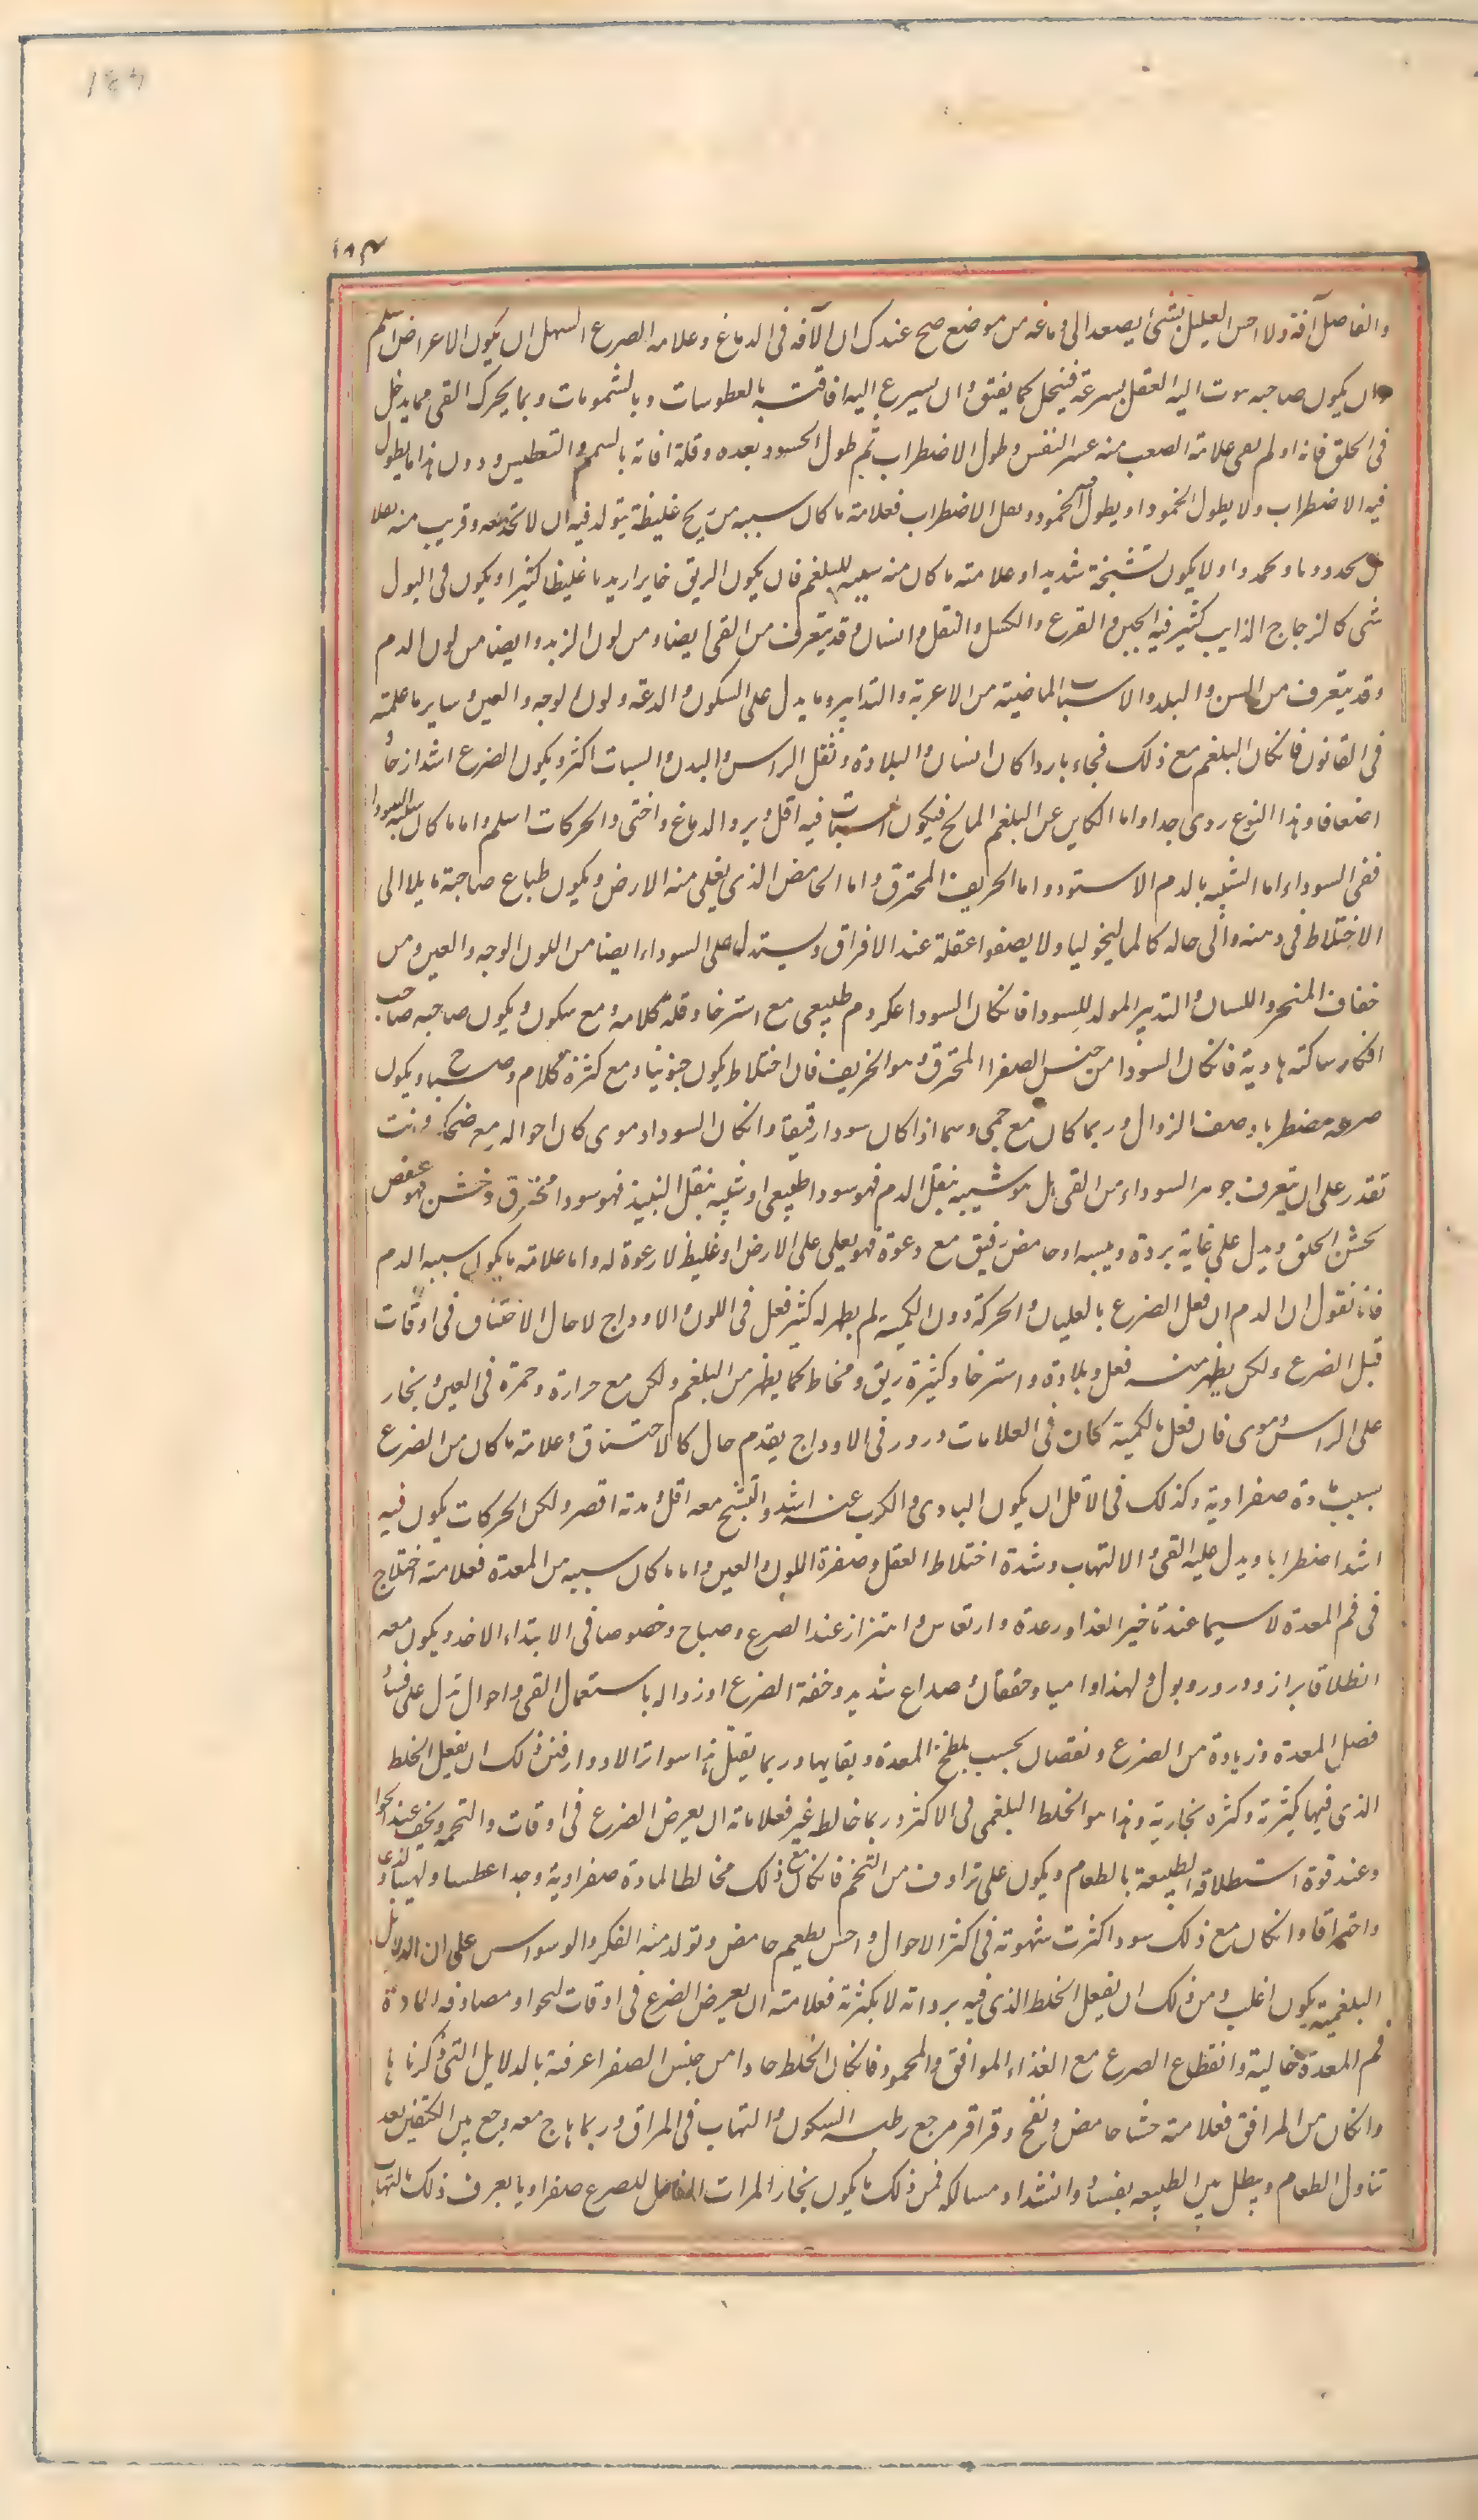 ۱۸۴
والفاصل آفة ولا احس العليل بشئ يصعد الى دماغه من موضع صح عندك ان الآفة فى الدماغ وعلامه الصرع السهل ان يكون الاعراض اسلم
وان يكون صاحبه سوت اليه العقل بسرعة فينجل كما يفتق وان يسرع اليه افاقته بالعطوسات وبالشمومات وبما يحرك القى مما يدخل
فى الحلق فانه او لم يعى علامة الصعب منه عسر النفس وطول الاضطراب ثم طول الحسود بعده وقلة افاته بالسم والتعطيس ودون هذا ما يطول
فيه الاضطراب ولا يطول الخمود او يطول الخمود ويعل الاضطراب فعلامة ما كان سببه من ريح غليظة يتولد فيه ان لا تجد معه وقريب منه ثقلا
ولا تمددا ولا يكون تشنجة شديدا وعلامته ما كان منه سببه البلغم فان يكون الريق خايرا زبديا غليظا كثيرا ويكون فى البول
شى كالزجاج الذايب كثير فيه الجبن والفزع والكسل والثقل والنسان وقد يتعرف من القى ايضا ومن لون الزبد وايضا من لون الدم
وقد يتعرف من السن والبلد والاسباب الماضية من الاعرية والتدابير وما يدل على السكون والدعة ولون الوجه والعين وساير ما علمته
فى القانون فانكان البلغم مع ذلك فجاء باردا كان النسان والبلادة وثقل الراس والبدن والسبات اكثر ويكون الصرع اشد ازخاء
اضعافا وهذا النوع ردى جدا واما الكاين عن البلغم المالح فيكون السبات فيه اقل وبرد الدماغ واختى والحركات اسلم واما ما كان سببه السودا
ففى السوداء اما الشبيه بالدم الاسود واما الحريف المحترق واما الحامض الذى يغلى منه الارض ويكون طباع صاحبة مايلا الى
الاختلاط فى ومنه والى حاله كالماليخوليا ولا يصفوا عقلة عند الافراق ويستدل على السوداء ايضا من اللون الوجه والعين ومن
خفاف المنحر واللسان والتدبير المولد للسودا فانكان السودا عكر دم طبيعى مع استرخا وقلة كلامه ومع سكون ويكون صاحبه صاحب
افكار ساكنه هادية فانكان السودا من جنس الصفرا المحترق وهو الخريف فان اختلاط يكون جنونيا ومع كثرة كلام وصياح ويكون
صرعه مضطربا وصف الزوال وربما كان مع حمى وسما اذا كان سودا رقيقا وانكان السودا دموى كان احواله مع ضحك وانت
تقدر على ان يتعرف جوهر السوداء من القى بل هو شبيه بثقل الدم فهو سودا طبيعى او شبيه بثقل النبيذ فهو سودا محترق وخشن فهو عفص
يخشن الحلق ويدل على غاية برده ويبسه او حامض رقيق مع دعوة فهو يغلى على الارض او غليظ لا رغوة له واما علامة ما يكون سببه الدم
فانا نقول ان الدم ان فعل الصرع بالغليان والحركة دون الكمية لم يظهر له كثير فعل فى اللون والاوداج لا حال الاختناق فى اوقات
قبل الصرع ولكن يظهر منه فعل وبلادة واسترخا وكثيرة ريق ومخاط كما يظهر من البلغم ولكن مع حرارة وحمرة فى العين وبخار
على الراس دموى فان فعل بالكمية كان فى العلامات درور فى الاوداج يقدم حال كالاحتناق وعلامة ما كان من الصرع
بسبب مادة صفراوية وكذلك فى الاقل ان يكون البادى والكرب عنه اشد والتشنج معه اقل ومدته اقصر ولكن الحركات يكون فيه
اشد اضطرابا ويدل عليه القى والالتهاب وشدة اختلاط العقل وصفرة اللون والعين واما ما كان سببه من المعدة فعلامته اختلاج
فى فم المعدة لا سيما عند تاخير الغدا ورعدة وارتعاش واهتزاز عند الصرع وصباح وخصوصا فى الابتداء الاخد ويكون معه
انطلاق براز ودرور وبول ولهذا واميا وخفقان وصداع شديد وخفة الصرع او زواله باستعمال القى واحوال تدل على فساد
فصل المعدة وزيادة من الصرع ونقصان بحسب بلطخ المعدة وبقايها وربما يقبل هذا سوارا الادوار فمن ذلك ان يفعل الخلط
الذى فيها كثيرته وكثره بخارية وهذا هو الخلط البلغمى فى الاكثر وربما خالط غير فعلاماته ان يعرض الصرع فى اوقات والتخمه ويخف عند الخوا
وعند قوة استطلاق الطبيعة بالطعام ويكون على ترادف من التخم فانكان مع ذلك مخالطا لمادة صفراوية وجدا عطسا ولهيبا ولذى
واحتراقا وانكان مع ذلك سودا كثرت شهوته فى اكثر الاحوال واحس بطعم حامض وتولد منه الفكر والوسواس على ان الدلايل
البلغمية يكون اغلب ومن ذلك ان يفعل الخلط الذى فيه برداته لا بكثرته فعلامته ان يعرض الصرع فى اوقات الحوا ومصادفه المادة
فم المعدة خالية وانقطاع الصرع مع الغذاء الموافق والمحمود فانكان الخلط حادا من جنس الصفرا عرفته بالدلايل التى ذكرناها
وانكان من المرافق فعلامته خشا حامض ونفخ وقراقر مرجع رطب السكون والتهاب فى المراق وربما هاج معه وجع بين الكتفين بعد
تناول الطعام ويبطل بين الطبيعه بفساد وانشداد مسالكه فمن ذلك ما يكون بخار المرات الفاعل للصرع صفراويا يعرف ذلك بالتهاب